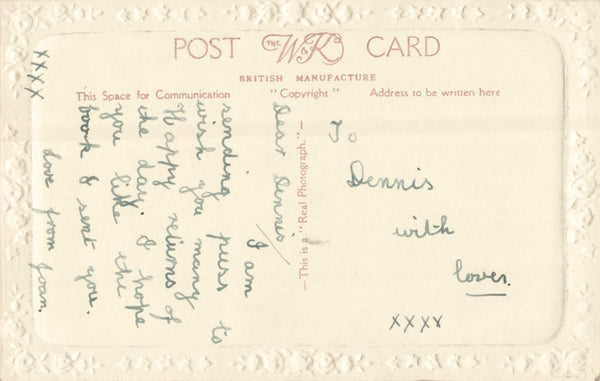 POST THE W&K CARD
BRITISH MANUFACTURE
This Space for Communication "Copyright." Address to be written here
—This is a "Real Photograph."—
Dear Dennis/
I am
sending puss to
wish you many
Happy returns of
the day. I hope
you like the
book I sent you.
Love from Joan.
XXXX
To
Dennis
with
love.
XXXX